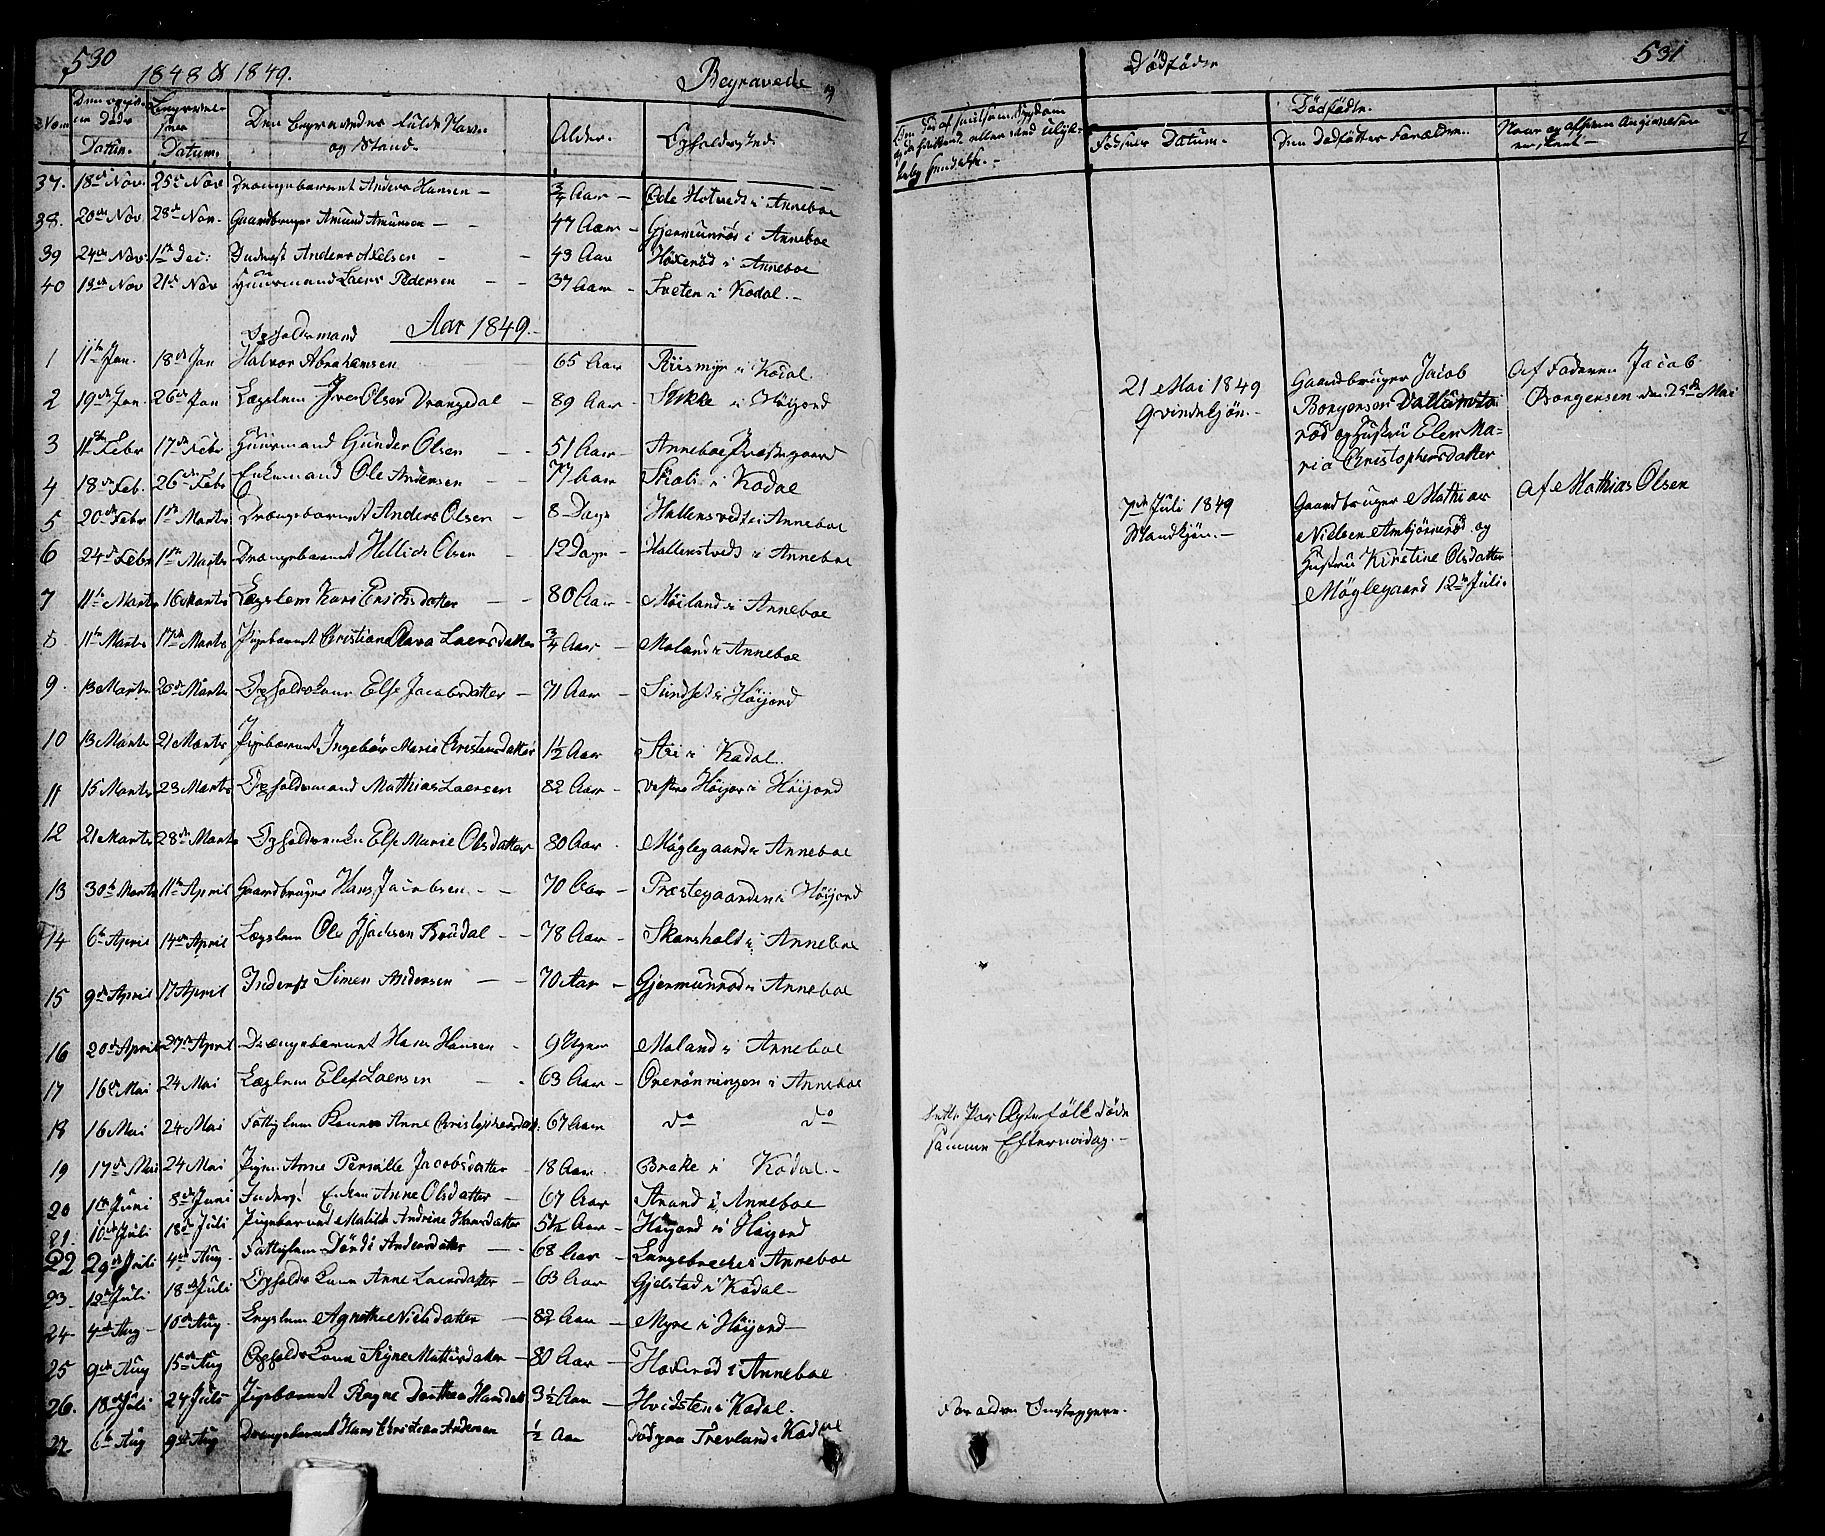 530
1848 & 1849.
Begravede
No
Datum.
Datum.
Den begravedes fulde Navn
og Stand.
Alder.
Opholdssted
37. 18de Nov. 25de Nov Drengebarnet Anders Hansen - 3/4 Aar - Øde Hotvedt i Anneboe
38. 20de Nov 28de Nov. Gaardbruger Amund Amunsen - - 47 Aar - Gjermunrød i Anneboe
39 24de Nov. 1ste Dec: Inderst Anders Axelsen - - 43 Aar Haxerød i Anneboe
40 13de Nov 21de Nov Huusmand Laers Pedersen - - 37 Aar - Fveten i Kodal.-
Aar 1849.-
Opholdsmand
1 11te Jan. 18de Jan Halvor Abrahamsen 65 Aar Riismyr i Kodal.
2 19de Jan. 26de Jan Lægslem Iver Olsen Drangedal - 89 Aar - Stokke i Høijord
3 11te Febr 17de Febr Huusmand Gunder Olsen - - 51 Aar - Anneboe Præstegaard
4 18de Feb. 26de Febr Enkemand Ole Andersen - - 77 Aar - Skali i Kodal
5 20de Febr 1ste Marts Drengebarnet Anders Olsen - 8 Dage - Hallenstvedt i Anneboe
6 24de Febr 1ste Marts Drengebarnet Hellich Olsen - 12 Dage - Hallenstvedt i Anneboe
7 11te Marts 16 Marts Lægslem Kari Erichsdatter - - 80 Aar - Møiland i Anneboe
8 11te Marts 17de Marts Pigebarnet Christiane Olava Laersdatter 3/4 Aar - Moland i Anneboe
9. 13 Marts 20de Marts Opholds Kone Else Jacobsdatter - 71 Aar - Sundset i Høijord
10 13 Marts 21 Marts Pigebarnet Ingebor Marie Christensdatter 1 1/2 Aar Stri i Kodal.
11 15 Marts 23 Marts Opholdsmand Mathias Laersen 82 Aar - vestre Høijor i Høijord
12 21 Marts 28de Marts Opholdsenke Else Marie Olsdatter 80 Aar - Møglegaard i Anneboe
13 30te Marts 11te April Gaardbruger Hans Jacobsen - - 70 Aar - Præstegaarden i Høijord
14 6te April 14de April Lægslem Ole Isachsen Brudal - - 78 Aar - Skarshold i Anneboe
15 9de April 17 April Inderst Simen Andersen - - 70 Aar - Gjermunrød i Anneboe
16 20de April 27de April Drengebarnet Hans Hansen - 9 Uger Moland i Anneboe
17 16de Mai 24 Mai Lægslem Elef Laersen - - 63 Aar - Overønningen i Anneboe
18 16 Mai 24 Mai Fattiglem Konen Anne Christophersdatt: 67 Aar do do
19 17de Mai 24 Mai Pigen Anne Pernille Jacobsdatter - 18 Aar. Breke i Kodal.-
20 1ste Juni 8de Juni Enken Anne Olsdatter - 67 Aar Strand i Anneboe
21. 10de Juli 18de Juli Pigebarnet Matilde Andrine Hansdatter 5 1/2 Aar - Høijord i Høijord
22 29de Juli 4de Aug. Fattiglem Dordi Andersdatter - - 68 Aar - Langebrecke i Anneboe
23. 12te Juli 18de Juli Opholds Kone Anne Laersdatter - 63 Aar Gjelstad i Kodal-
24 4de Aug - 10de Aug. Lægslem Agnethe Nielsdatter - 82 Aar - Myre i Høijord -
25 9de Aug 15de Aug Opholds Kone Signe Mattisdatter - 80 Aar - Haxerød i Anneboe
26. 18de Juli 24 Juli Pigebarnet Ragne Dorthea Hansdatt 3 1/2 Aar - Hvidsten i Kodal.-
27 6te Aug 9de Aug Drengebarnet Hans Christian Andersen 1/2 Aar Trevland i Kodal
531
Dødfødte
Dødfødte.
Fødsels Datum.-
Den Dødfødtes Forældre.-
21 Mai 1849
Qvindekjøn.-
Gaardbruger Jacob
Borgersen Vallumrød
og Hustru Elen Ma-
ria Christophersdatter
Af Faderen Jacob
Borgersen den 25de Mai
7de Juli 1849
Mandkjøn.-
Gaardbruger Mathias
Nielsen Amkjønerød og
Hustru Kirstine Olsdatter
Møglegaard 12te Juli.
af Mathias Olsen
dette Par Ægtefolk døde
samme Eftermiddag.-
Forældre Omstreggere.-